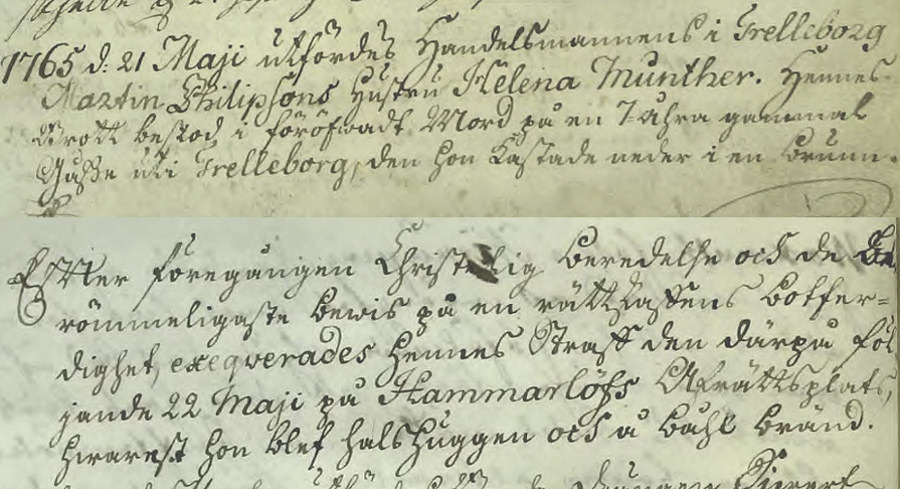 1765 d. 21 Maji utfördes Handelsmannens i Trelleborg
Martin Philipsons Hustru Helena Munther. Hennes
Brott bestod i föröfwadt Mord på en 7 åhra gammal
Gåsse uti Trelleborg, den hon kastade neder i en Brunn.
Efter föregången Christelig Beredelse och de be
römmeligaste bewis på en rättskaffens botfer=
dighet, exeqverades Hennes Straff den därpå föl
jande 22 Maji på Hammarlöfs Afrättsplats,
hwarest hon blef halshuggen och å båhl bränd.